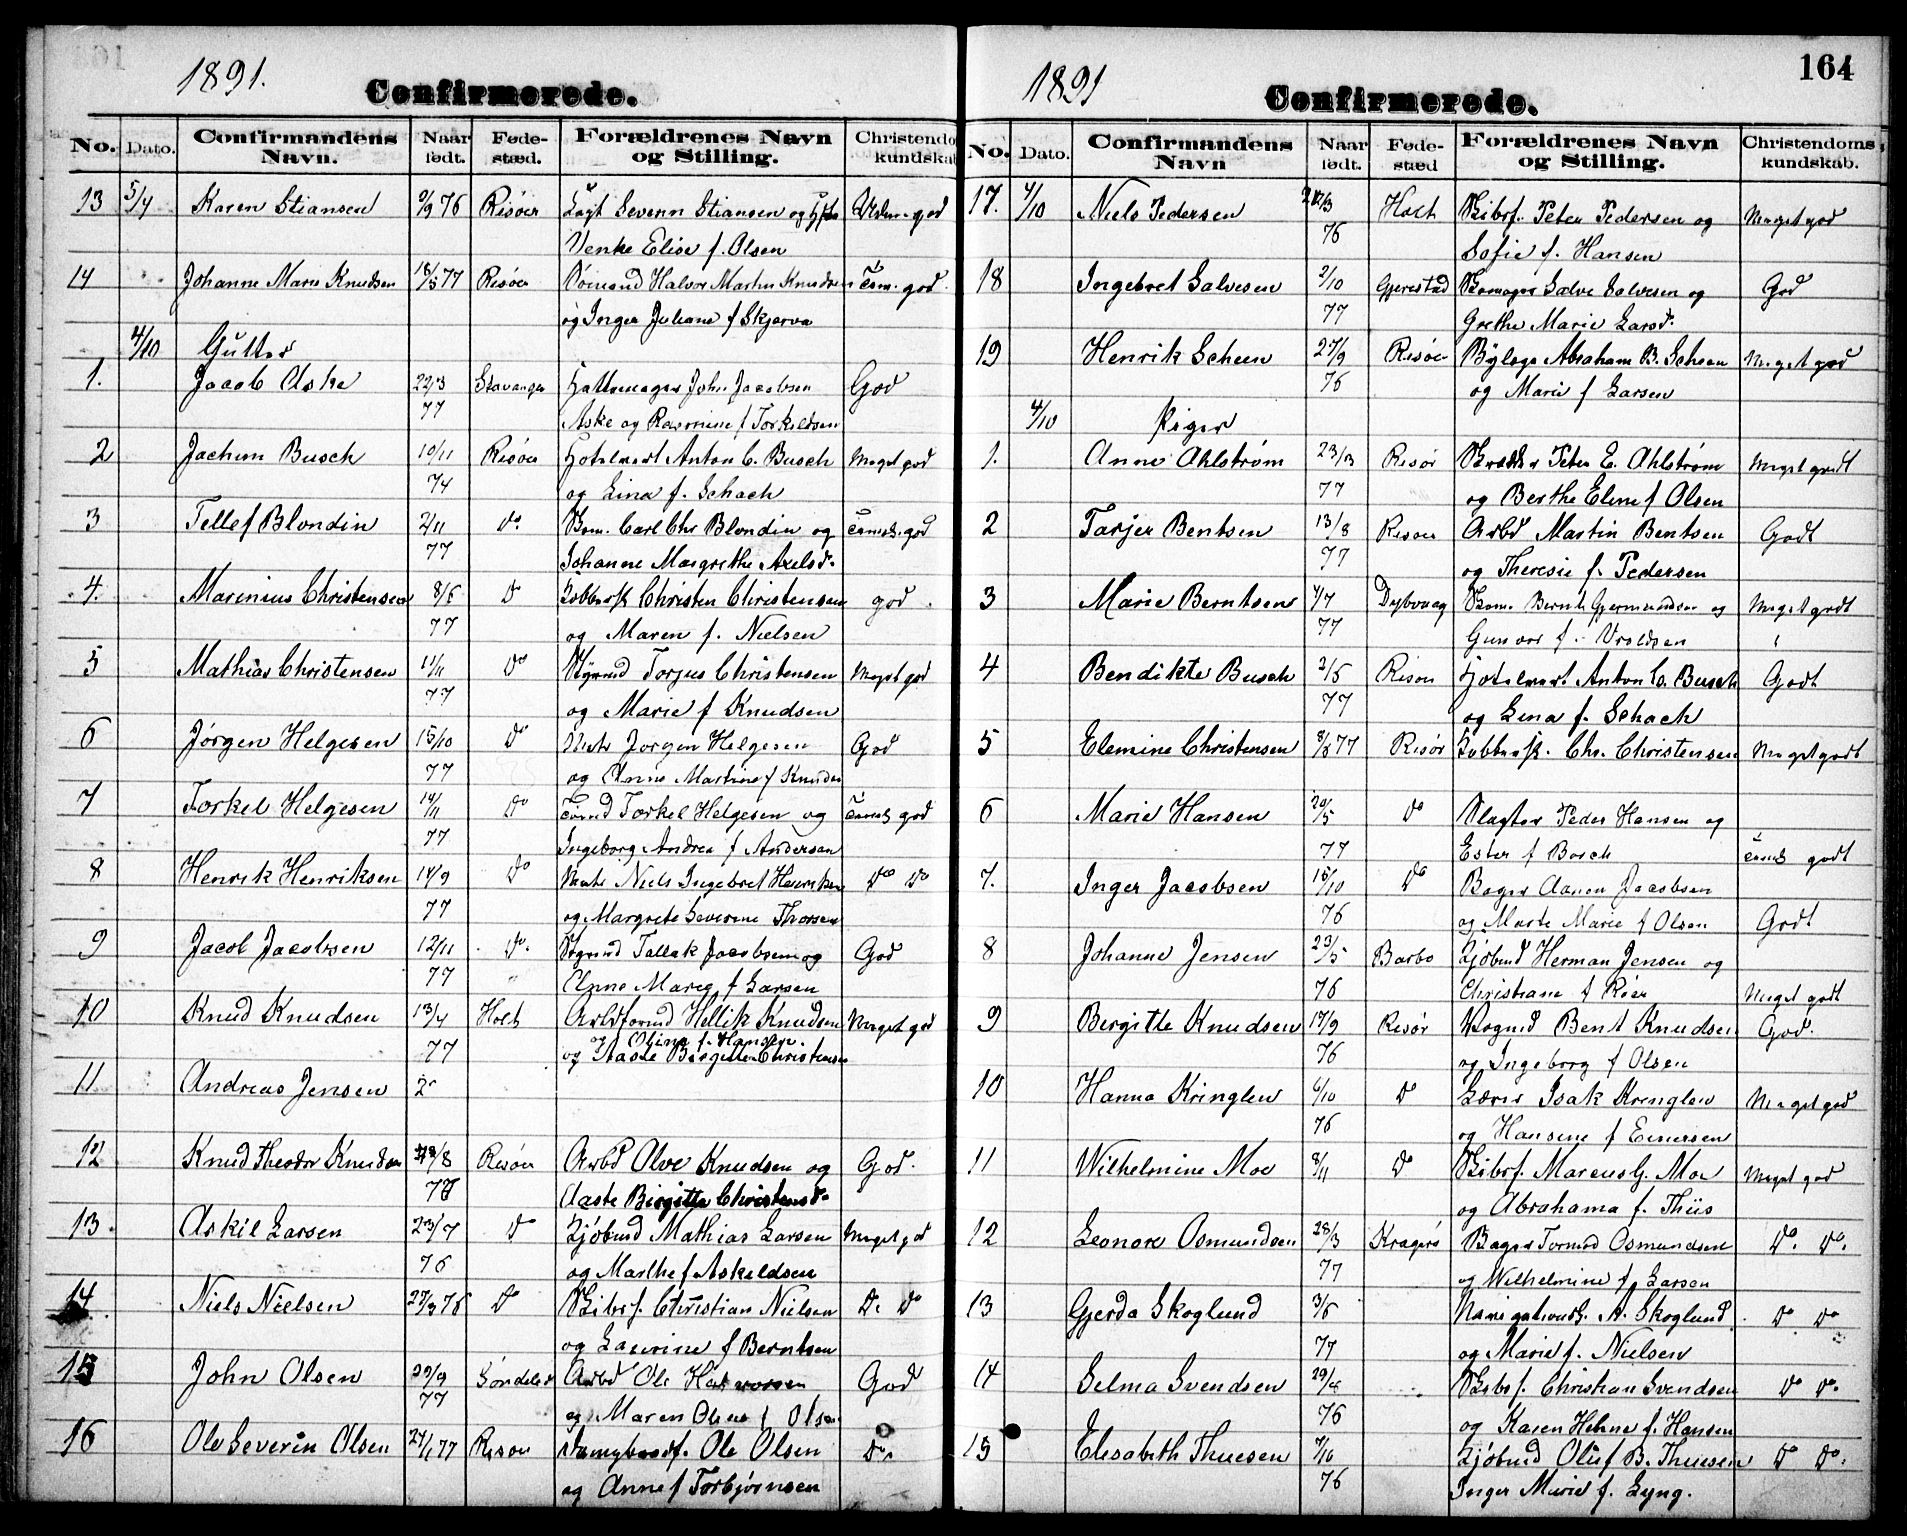 1891.
Confirmerede.
No. Dato. Confirmandens Navn. Naar født. Føde-stæd. Forældrenes Navn og Stilling. Christendo kundskab
13 5/4 Karen Stiansen 9/9 76 Risøer Severin Stiansen og god
Venke Elise f. Olsen
14 Johanne Marie Knudsen 18/5 77 Risøer Halvor Martin Knudsen god.
og Inger Juliane f Skjerva
4/10 Gutter
1. Jacob Aske 22/3 Stavanger Hattemager John Jacobsen God
77 Aske og Rasmine f Torkildsen
2 Jachim Busch 10/11 Risøer Hotelvert Anton C. Busch Meget god
74 og Lina f. Schach
3 Tellef Blondin 2/11 Do. Carl Chr Blondin og god
77 Johanne Margrethe Axelsd.
4. Marinius Christensen 8/6 Do Kobbersl Christen Christensen god.
77 og Maren f. Nielsen
5 Mathias Christensen 11/11 Do Styrmd Torjus Christensen Meget god
77 og Marie f Knudsen
6 Jørgen Helgesen 15/10 Do Jørgen Helgesen God
77 og Anne Martine f Knudsen
7 Torkel Helgesen 14/11 Do Tømd Torkel Helgesen og god
77 Ingeborg Andrea f Andersen
8 Henrik Henriksen 14/9 Do Niels Ingebret Henriksen Do Do
77 og Margrete Severine Thorsen
9 Jacob Jacobsen 12/11 Do. Tallak Jacobsen og God
77 Anne Marie f Larsen
10 Knud Knudsen 13/4 Holt Hellik Knudsen Meget god
og Olina f. Hansen.
77 og Aaste Birgitte Christensen
11 Andreas Jensen 2
12 Knud Theodor Knudsen /8 Risøer Arbd Alve Knudsen og God.
Aaste Birgitte Christensd.
13. Askil Larsen 23/7 Do Sjömd Mathias Larsen Meget god
76 og Marthe f Askeldsen
14 Niels Nielsen 27/3 76 Do Skibsf. Christian Nielsen Do Do
og Laurine f Berntsen
15 John Olsen 29/9 Søndeled Arbd Ole Halvorsen God
77 og Maren f Olsen
16 Ole Severin Olsen 24/1 77 Risøer Ole Olsen Do.
og Anne f Torbjørnsen
164
1891
Confirmerede.
No. Dato. Confirmandens Navn Naar født. Føde-stæd Forældrenes Navn og Stilling. Christendoms kundskab.
17. 4/10 Niels Pedersen /3 Holt Skibsf. Peter Pedersen og Meget god
76 Sofie f. Hansen
18 Ingebret Salvesen 2/10 Gjerestad Salve Salvesen og God
77 Grethe Marie Larsd.
19 Henrik Scheen 27/9 Risøer Abraham B. Scheen Meget god
76 og Marie f Larsen
4/10 Piger
1. Anne Ahlstrøm 23/3 Risør Peter E. Ahlstrøm Meget godt
77 og Berthe Eline f Olsen
2 Tarjer Bentsen 13/8 Risøer Arbd Martin Bentsen Godt
77 og Theresie f. Pedersen
3 Marie Berntsen 4/7 Dybvaag Bernt Gjermundsen og Meget godt
77 Gunvor f. Vroldsen
4 Bendikte Busch 2/5 Risøer Hotelvert Anton C. Busch Godt
77 og Lina f. Schach
5 Elemine Christensen 8/8 77 Risør Kobbersl. Chr. Christensen Meget godt
6 Marie Hansen 20/5 Do Slagter Peder Hansen og
77 Ester f Borch godt
7. Inger Jacobsen 18/10 Do Bager Aanen Jacobsen
76 og Marte Marie f Olsen Godt
8 Johanne Jensen 23/5 Barbo Sjömd Herman Jensen og
76 Christiane f Röer Meget godt
9 Birgitte Knudsen 17/9 Risør Bent Knudsen God.
76 og Ingeborg f Olsen
10 Hanna Kringlen 6/10 Do Lærer Isak Kringlen Meget god
76 og Hansine f Einersen
11 Wilhelmine Moe 8/11 Do Skibsf. Marcus G. Moe Meget god
og Abrahama f. Thiis
12 Leonore Osmundsen 28/3 Kragerø Bager Tormod Osmundsen Do. Do.
77 og Wilhelmine f Larsen
13 Gjerda Skoglund 3/6 Navigationssk. A. Skoglund Do Do
77 og Marie f. Nielsen
14 Selma Svendsen 29/4 Skibsf. Christian Svendsen Do Do.
76 og Karen Helene f. Hansen
15 Elisabeth Thuesen 7/10 Sjömd Oluf B. Thuesen Do Do.
76 Inger Marie f. Lyng.